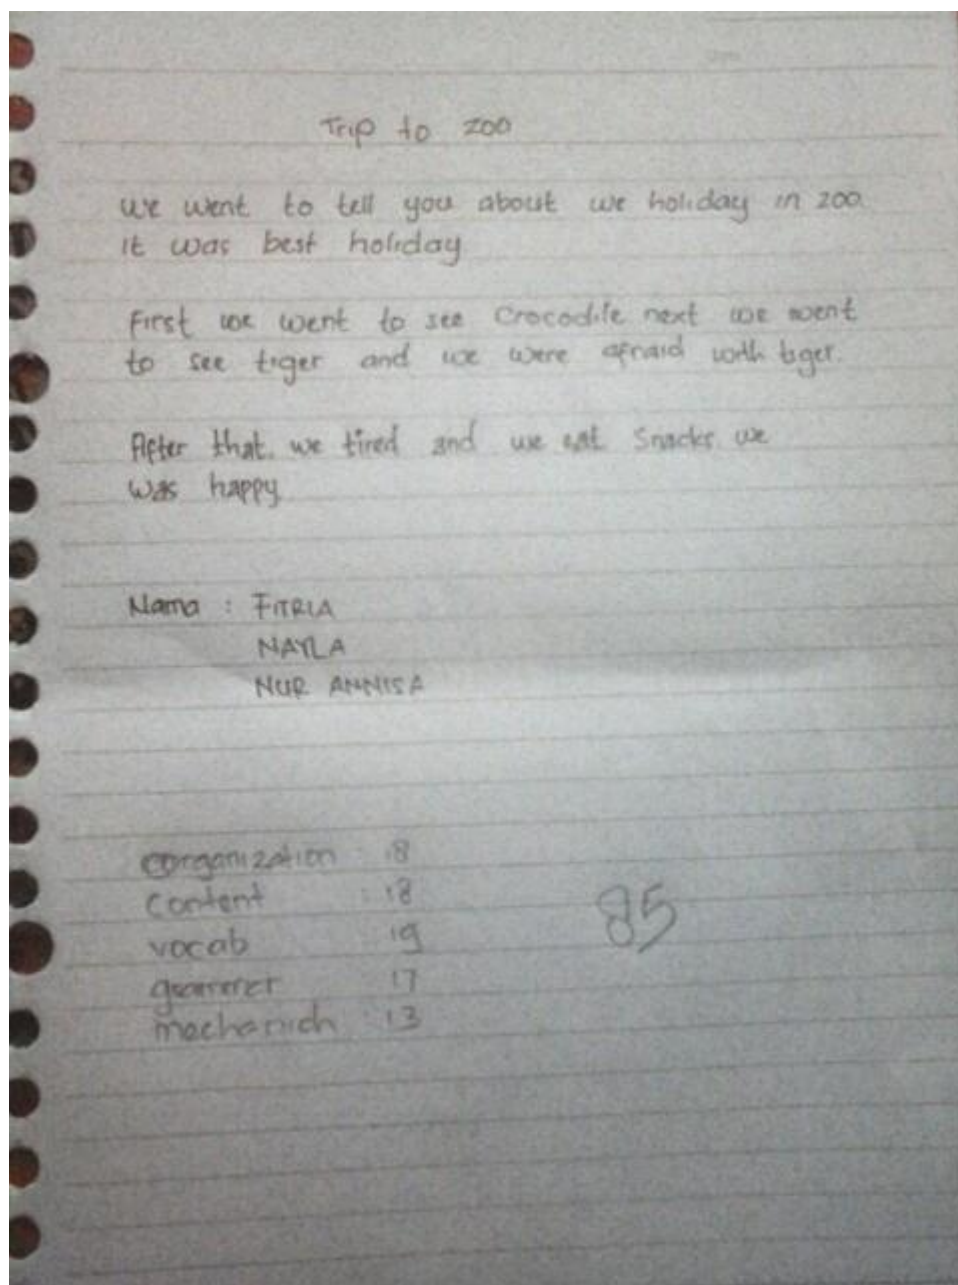 Trip to zoo
we went to tell you about we holiday in zoo.
it was best holiday
First we went to see Crocodile next we went
to see tiger and we were afraid with tiger.
After that. we tired and we eat snacks. we
was happy.
Nama : FITRIA
NAYLA
NUR ANNISA
organization : 18
content : 18
vocab : 19
grammer : 17
mechanich : 13
85